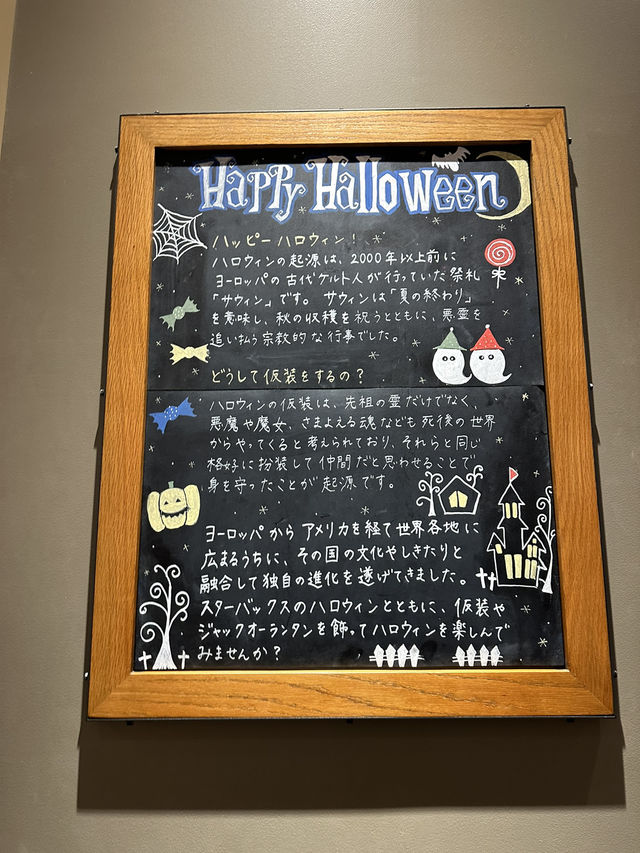 Happy Halloween
ハッピーハロウィン!
ハロウィンの起源は、2000年以上前に
ヨーロッパの古代ケルト人が行っていた祭礼
「サウィン」です。サウィンは「夏の終わり」
を意味し、秋の収穫を祝うとともに、悪霊を
追い払う宗教的な行事でした。
どうして仮装をするの?
ハロウィンの仮装は、先祖の霊だけでなく、
悪魔や魔女、さまよえる魂なども死後の世界
からやってくると考えられており、それらと同じ
格好に扮装して仲間だと思わせることで
身を守ったことが起源です。
ヨーロッパからアメリカを経て世界各地に
広まるうちに、その国の文化やしきたりと
融合して独自の進化を遂げてきました。
スターバックスのハロウィンとともに、仮装や
ジャックオーランタンを飾ってハロウィンを楽しんで
みませんか?